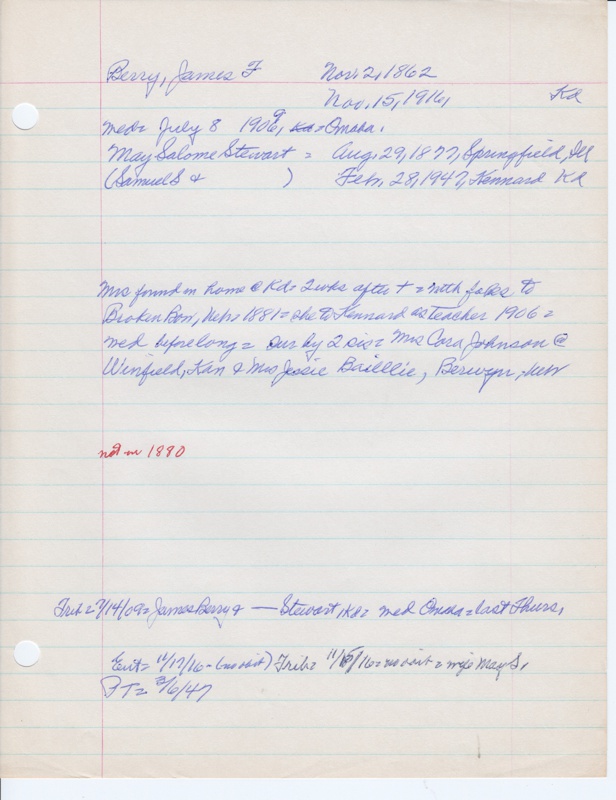 Berry, James F Nov. 2, 1862
Nov. 15, 1916, Kd
med= July 8 1909, = Omaha,
May Salome Stewart = Aug. 29, 1877, Springfield, Ill
(Samuel S & ) Feb. 28, 1947, Kennard Kd
Mrs found in home @ Kd= 2 wks after + = with folks to
Broken Bow, Neb= 1881= she to Kennard as teacher 1906 =
med before long = Sur by 2 sis= Mrs Cora Johnson @
Winfield, Kan & Mrs Jessie Baillie, Berwyn, Neb
not in 1880
Trib= 7/14/09= James Berry & — Stewart, Kd= med Omaha= last Thurs,
Ent= 11/17/16 - (no obit) Trib= 11/ /16= no obit = wife May S,
PT= 3/6/47